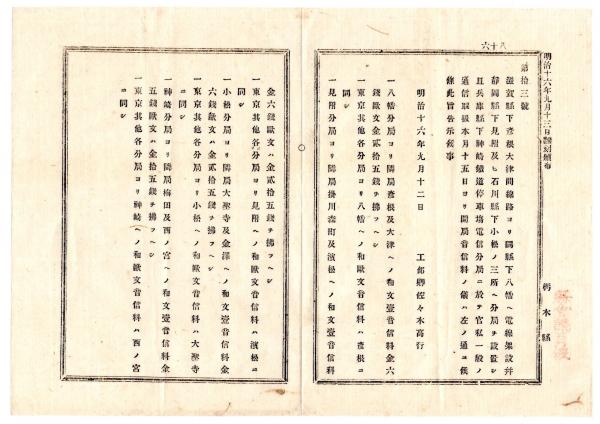 明治十六年九月十三日
栃木縣
八十六
第拾三號
滋賀縣下彦根大津間線路ヨリ同縣下八幡ヘ電線架設幷
靜岡縣下見附及ヒ石川縣下小松ノ三所ヘ分局ヲ設置シ
且兵庫縣下神崎鐵道停車塲電信分局ニ於テ官私一般ノ
通信取扱本月十五日ヨリ開局音信料ノ儀ハ左ノ通ニ候
條此旨告示候事
明治十六年九月十二日
工部卿佐々木高行
一八幡分局ヨリ隣局彦根及大津ヘノ和文壹音信料金六
錢歐文ハ金貳拾五錢ヲ拂フヘシ
一東京其他各分局ヨリ八幡ヘノ和歐文音信料ハ彦根ニ
同シ
一見附分局ヨリ隣局掛川森町及濱松ヘノ和文壹音信料
金六錢歐文ハ金貳拾五錢ヲ拂フヘシ
一東京其他各分局ヨリ見附ヘノ和歐文音信料ハ濱松ニ
同シ
一小松分局ヨリ隣局大聖寺及金澤ヘノ和文壹音信料金
六錢歐文ハ金貳拾五錢ヲ拂フヘシ
一東京其他各分局ヨリ小松ヘノ和歐文音信料ハ大聖寺
ニ同シ
一神崎分局ヨリ隣局梅田及西ノ宮ヘノ和文壹音信料金
五錢歐文ハ金貳拾五錢ヲ拂フヘシ
一東京其他各分局ヨリ神崎ヘノ和歐文音信料ハ西ノ宮
ニ同シ